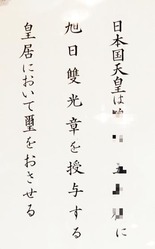 日本国天皇は に
旭日雙光章を授与する
皇居において璽をおさせる